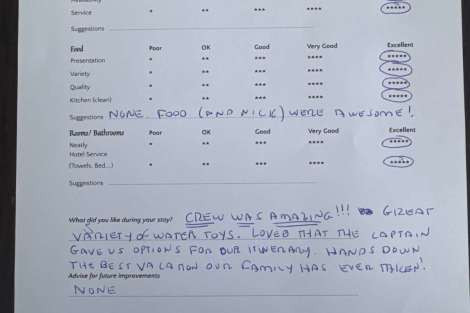 Service * ** *** **** *****
Suggestions
Food Poor OK Good Very Good Excellent
Presentation * ** *** **** *****
Variety * ** *** **** *****
Quality * ** *** **** *****
Kitchen (clean) * ** *** **** *****
Suggestions NONE. FOOD (AND NICK) WERE AWESOME!
Rooms/Bathrooms Poor OK Good Very Good Excellent
Neatly * ** *** **** *****
Hotel Service
(Towels, Bed...) * ** *** **** *****
Suggestions
What did you like during your stay? CREW WAS AMAZING!!! GREAT
VARIETY of WATER TOYS. LOVED THAT THE CAPTAIN
GAVE US OPTIONS FOR OUR ITINERARY. HANDS DOWN
THE BEST VACATION OUR FAMILY HAS EVER TAKEN!
Advise for future improvements
NONE